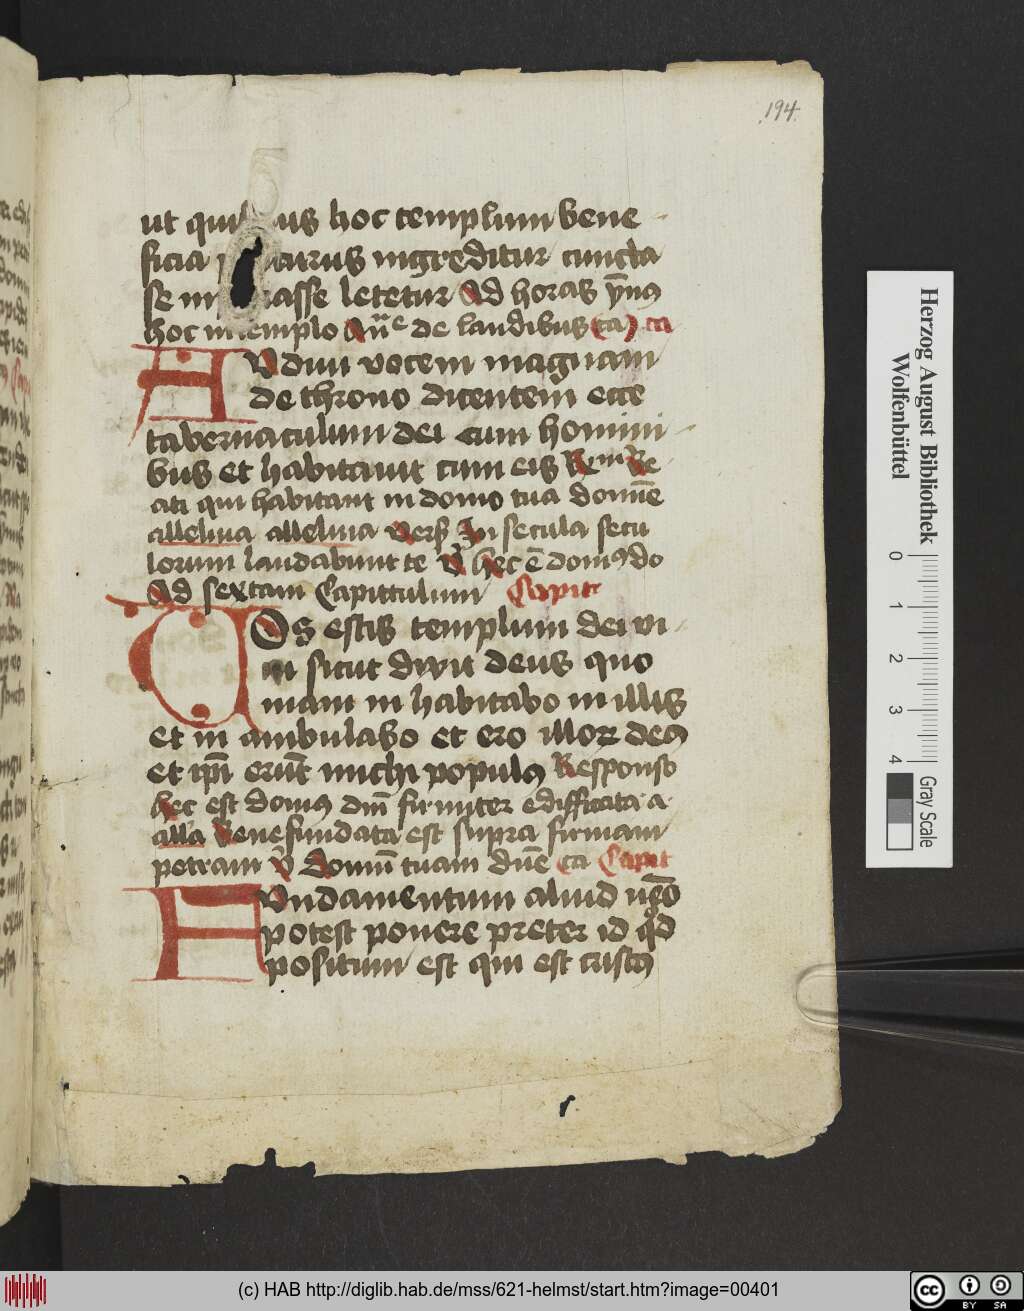 194.
ut qui us hoc templum bene
ficia turus ingreditur cuncta
se im asse letetur Ad horas ẏnꝰ
hoc in templo Añe de laudibus ca
Vdiui vocem magnam
de throno dicentem ecce
tabernaculum dei cum homini
bus et habitauit cum eis Rem Be
ati qui habitant in domo tua domīe
allelnia allelnia vers In secula secu
lorum laudabunt te V̊ hec ē domꝰ do
Ad sextam Capittulum Capit
V Os estis templum dei vi
ui sicut dixit deus quo
niam in habitabo in illis
et in ambulabo et ero illoꝝ deꝰ
et ipī erūt michi populꝰ Responso
hec est domꝰ dnī firmiter edifficata a
alla Benefundata est supra firmam
petram V̊ Domū tuam dn̄e ca Capit
F Vndamentum aliud nēo
potest ponere preter id qd
positum est qui est cristꝰ
Herzog August Bibliothek
Wolfenbüttel
0 1 2 3 4
Gray Scale
(c) HAB http://diglib.hab.de/mss/621-helmst/start.htm?image=00401
cc BY SA